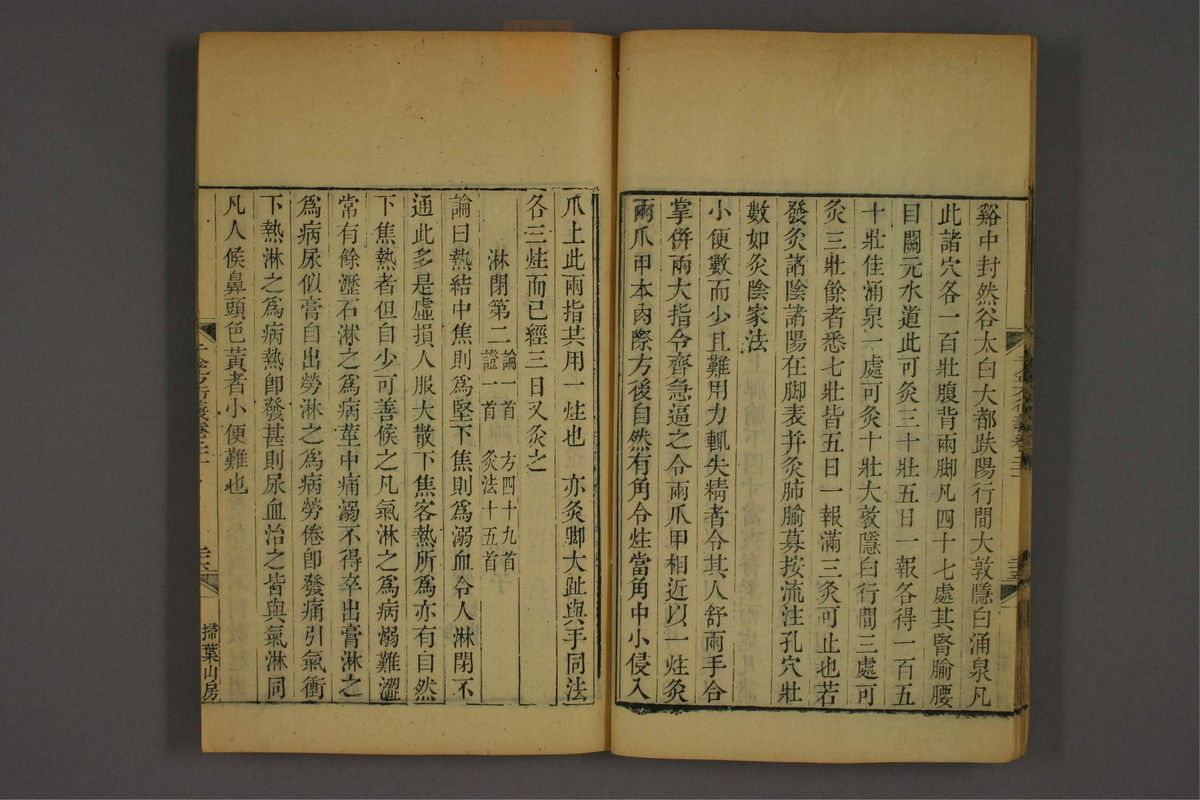 谿中封然谷太白大都趺陽行間大敦隱白涌泉凡
此諸穴各一百壯腹背兩脚凡四十七處其腎腧腰
目關元水道此可灸三十壯五日一報各得一百五
十壯佳涌泉一處可灸十壯大敦隱白行間三處可
灸三壯餘者悉七壯皆五日一報滿三灸可止也若
發灸諸陰諸陽在脚表幷灸肺腧募按流注孔穴壯
數如灸陰家法
小便數而少且難用力輒失精者令其人舒兩手合
掌併兩大指令齊急逼之令兩爪甲相近以一炷灸
兩爪甲本肉際方後自然有角令炷當角中小侵入
爪上此兩指其用一炷也 亦灸脚大趾與手同法
各三炷而已經三日又灸之
淋閉第二 論一首 方四十九首 證一首 灸法十五首
論曰熱結中焦則爲堅下焦則爲溺血令人淋閉不
通此多是虛損人服大散下焦客熱所爲亦有自然
下焦熱者但自少可善候之凡氣淋之爲病溺難澀
常有餘瀝石淋之爲病莖中痛溺不得卒出膏淋之
爲病尿似膏自出勞淋之爲病勞倦卽發痛引氣衝
下熱淋之爲病熱卽發甚則尿血治之皆與氣淋同
凡人候鼻頭色黃者小便難也
掃葉山房